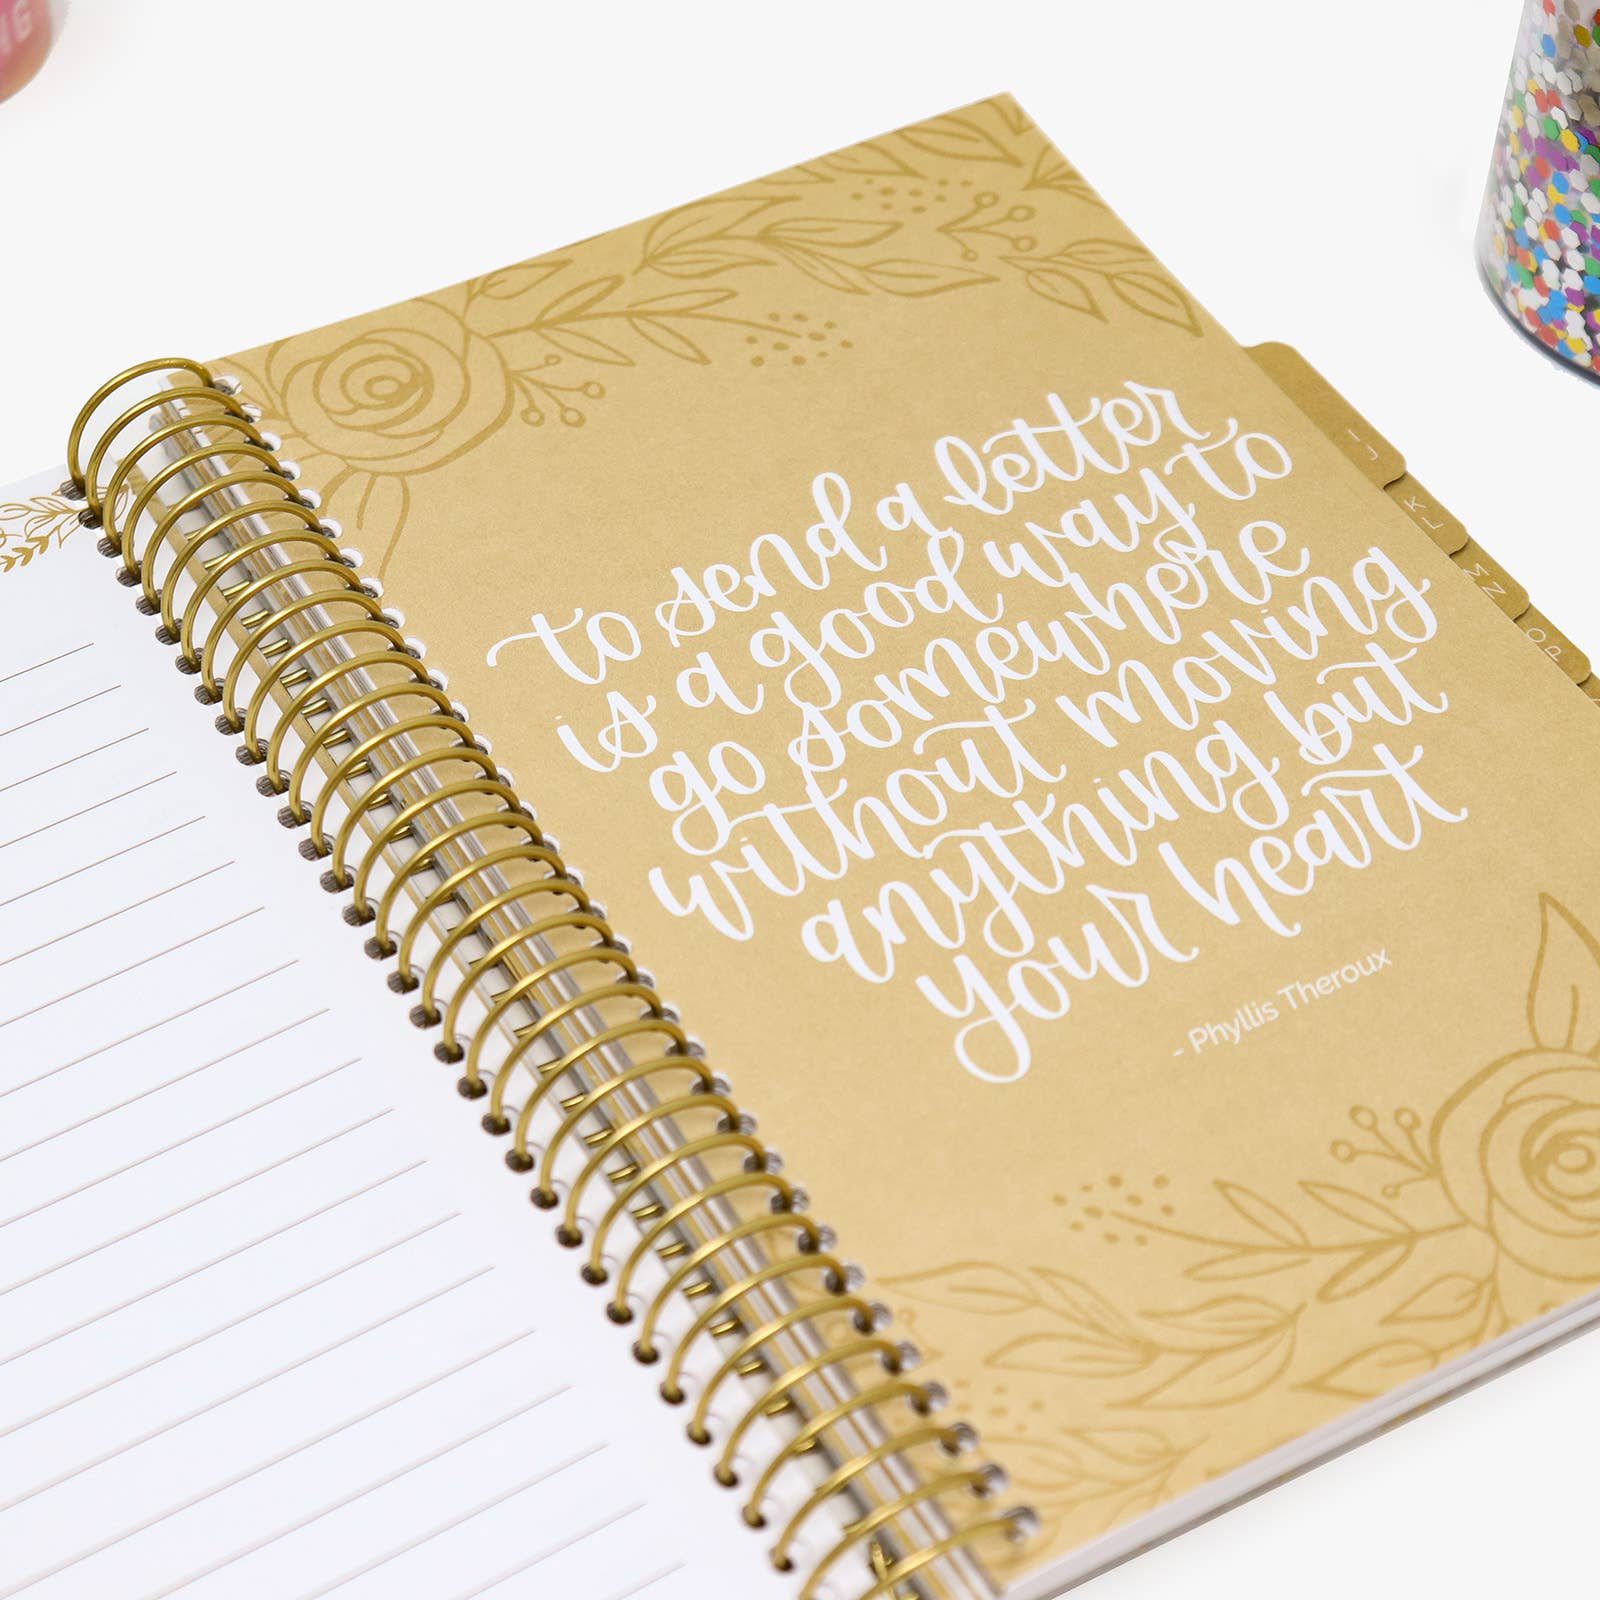 to send a letter
is a good way to
go somewhere
without moving
anything but
your heart
- Phyllis Theroux
I J
K L
M N
O P